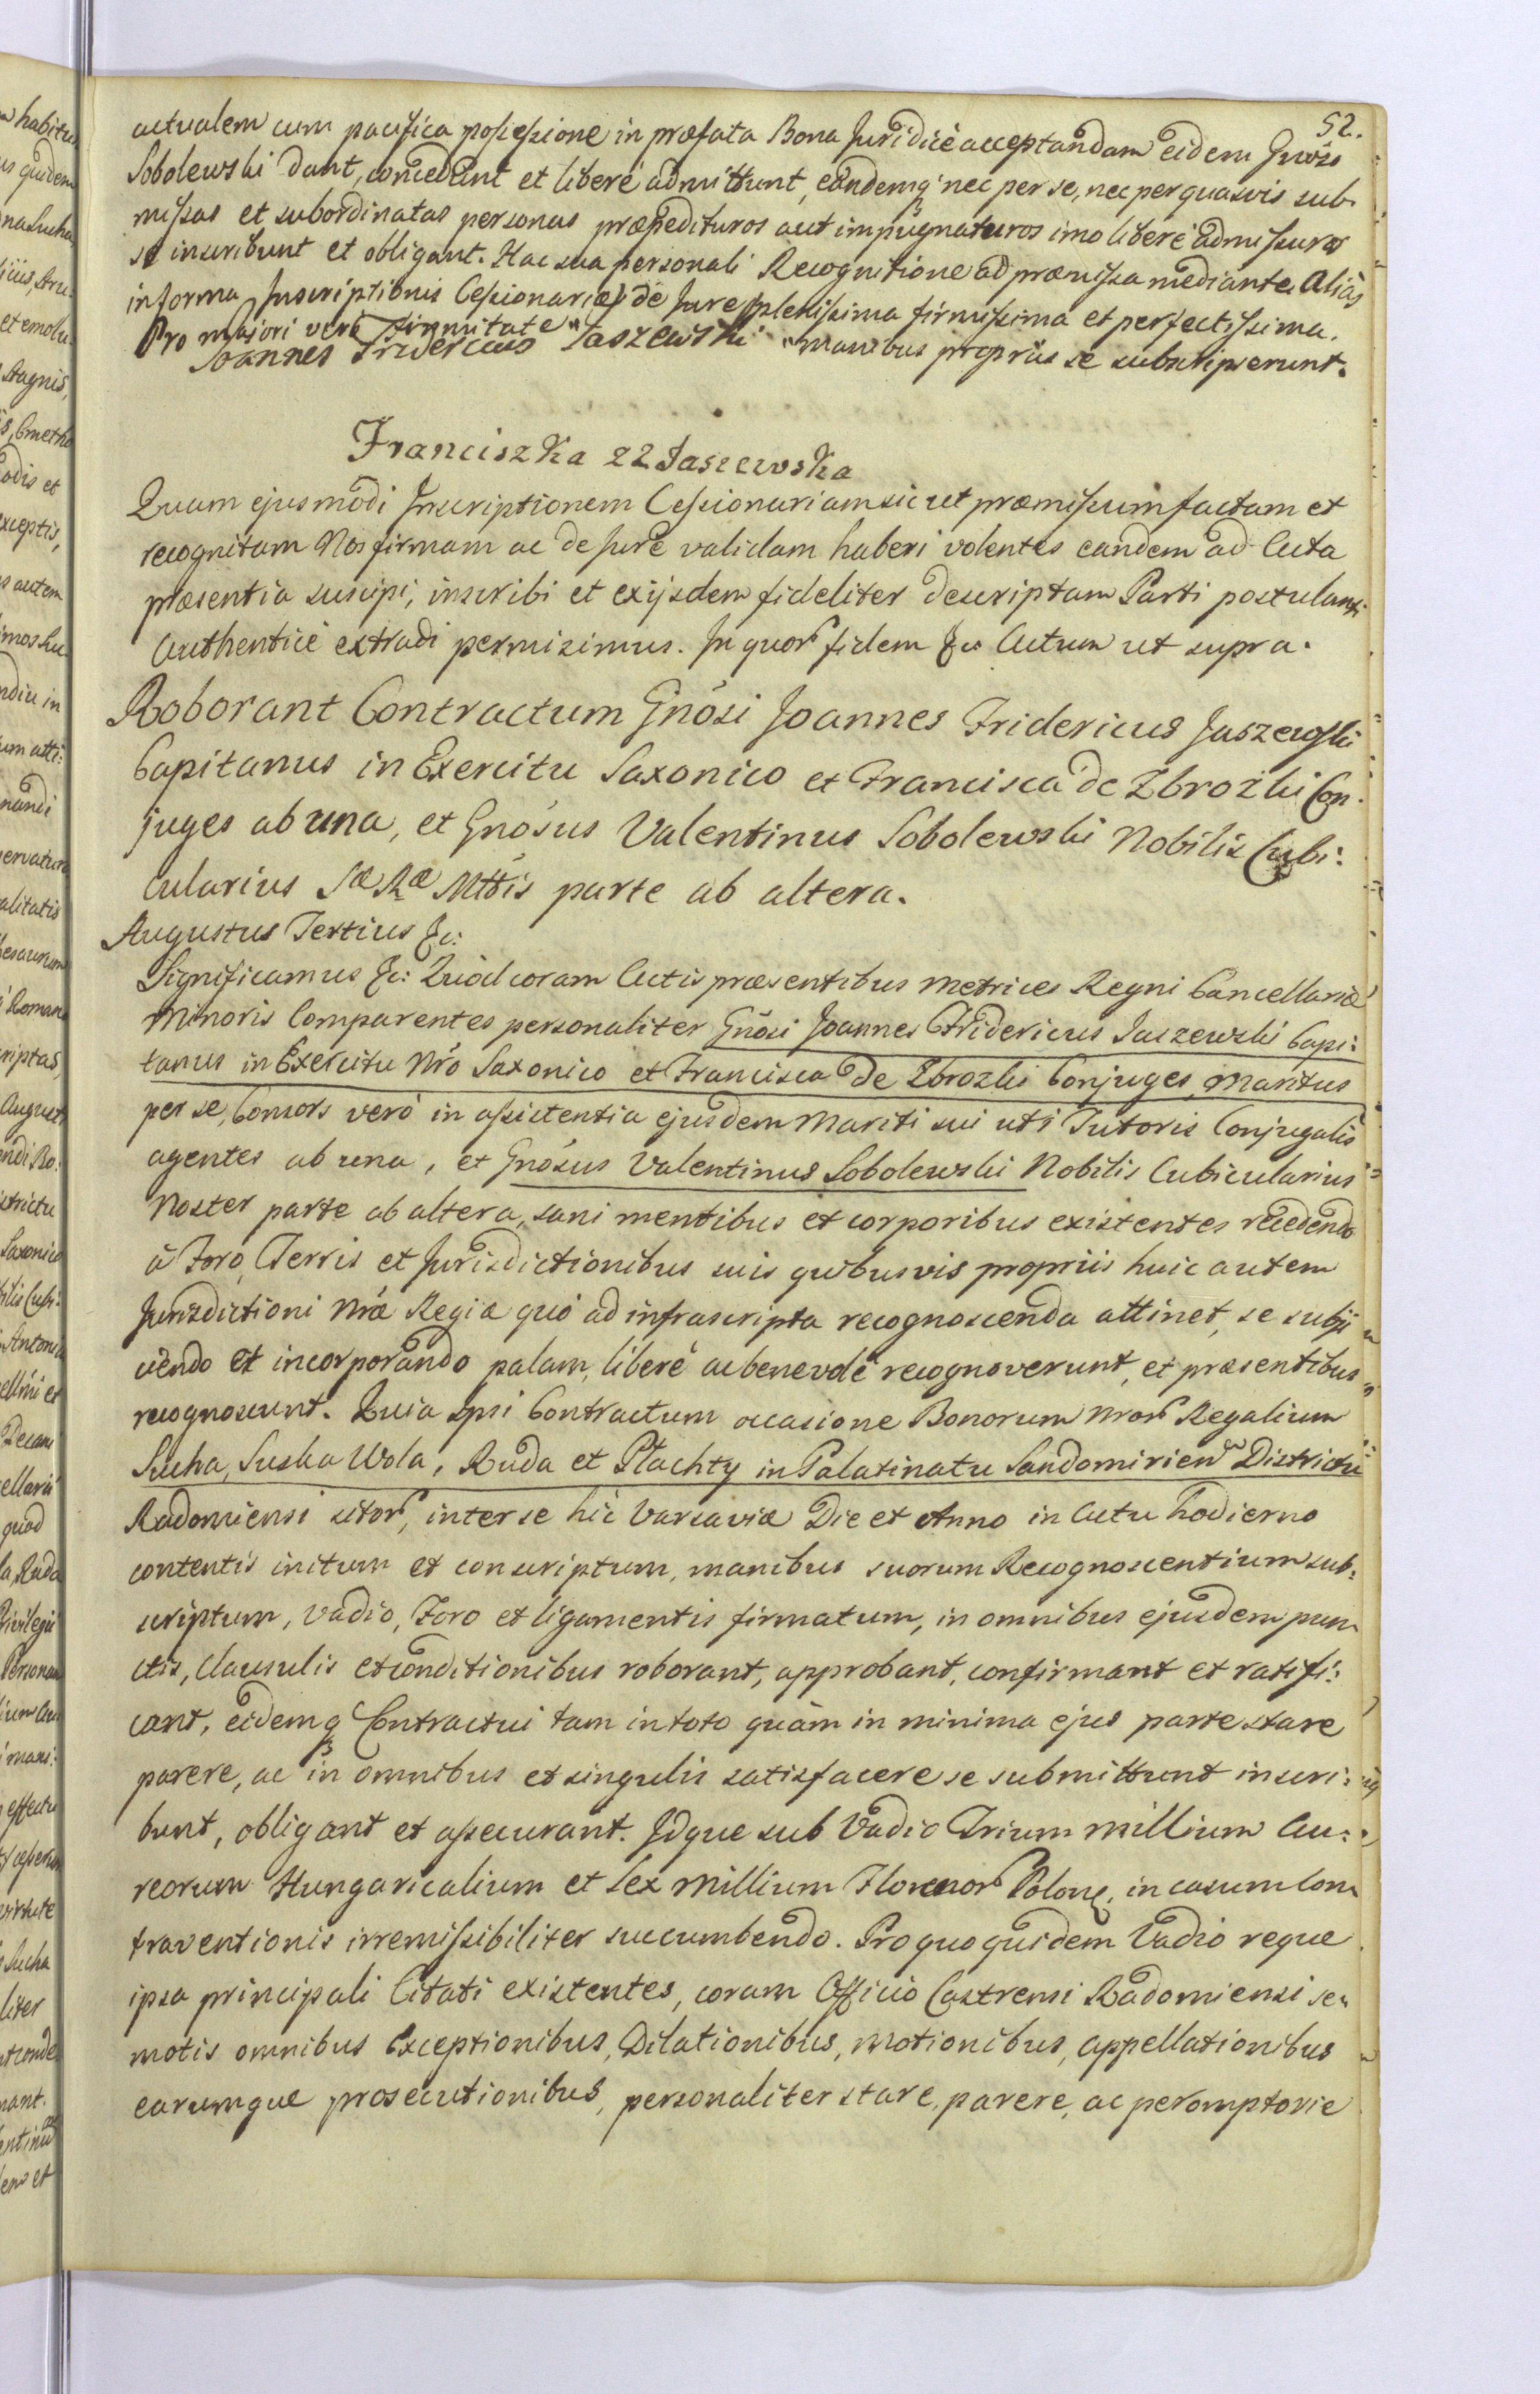 52.
actualem cum pacifica possessione in præfata Bona Juridicè acceptandam eidem Gnoso
Sobolewski dant, concedunt et liberè admittunt, eandemq; nec per se, nec per quasvis sub-
missas et subordinatas personas præpedituros aut impugnaturos imo liberè admissuros
se inscribunt et obligant. Hac sua personali Recognitione ad præmissa mediante. Aliàs
in forma Inscriptionis Cessionariæ de Jure plenissima firmissima et perfectissima.
Pro majori verò firmitate manibus propriis se subscripserunt.
Joannes Fridericus Jaszewski
Franciszka z Z Jaszewska
Quam ejusmodi Inscriptionem Cessionariam sicut præmissum factam et
recognitam Nos firmam ac de Jure validam haberi volentes eandem ad Acta
præsentia suscipi, inscribi et ex ijsdem fideliter descriptam Parti postulanti
Authenticè extradi permisimus. In quor fidem &c Actum ut supra.
Roborant Contractum Gnosi Joannes Fridericus Jaszewski
Capitanus in Exercitu Saxonico et Francisca de Zbrożki Con-
juges ab una, et Gnosus Valentinus Sobolewski Nobilis Cubi:
cularius Sæ Ræ Mttis parte ab altera.
Augustus Tertius &c:
Significamus &c: Quod coram Actis præsentibus Metrices Regni Cancellariæ
Minoris Comparentes personaliter Gnosi Joannes Fridericus Jaszewski Capi:
tanus in Exercitu Nro Saxonico et Francisca de Zbrozki Conjuges, Maritus
per se, Consors verò in assistentia ejusdem Mariti sui uti Tutoris Conjugalis
agentes ab una, et Gnosus Valentinus Sobolewski Nobilis Cubicularius
Noster parte ab altera, sani mentibus et corporibus existentes recedendo
à Foro, Terris et Jurisdictionibus suis quibusvis propriis huic autem
Jurisdictioni Nræ Regiæ quò ad infrascripta recognoscenda attinet, se subji
ciendo et incorporando palam, liberè ac benevolè recognoverunt, et præsentibus
recognoscunt. Quia Ipsi Contractum occasione Bonorum Nror Regalium
Sucha, Suska Wola, Ruda et Płachty in Palatinatu Sandomirien Districtu
Radomiensi sitor, inter se hic Varsaviæ Die et Anno in Actu hodierno
contentis initum et conscriptum, manibus suorum Recognoscentium sub:
scriptum, vadio, Foro et ligamentis firmatum, in omnibus ejusdem pun
ctis, Clausulis et conditionibus roborant, approbant, confirmant et ratifi:
cant, eidemq; Contractui tam in toto quàm in minima ejus parte stare
parere, ac in omnibus et singulis satisfacere se submittunt inscri:
bunt, obligant et assecurant. Idque sub Vadio Trium millium Au:
reorum Hungaricalium et Sex Millium Florenor Polon, in casum con
traventionis irremissibiliter succumbendo. Pro quo quidem Vadio reque
ipsa principali Citati existentes, coram Officio Castrensi Radomiensi se
motis omnibus Exceptionibus, Dilationibus, Motionibus, Appellationibus
earumque prosecutionibus, personaliter stare, parere, ac peromptorie